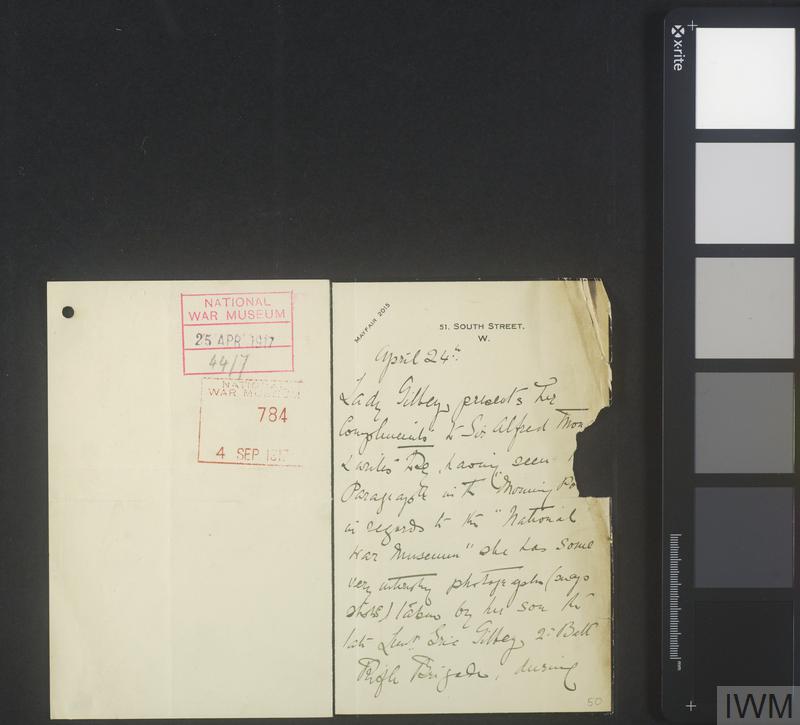 x-rite
NATIONAL
WAR MUSEUM
25 APR 1917
44/7
NATIONAL
WAR MUSEUM
784
4 SEP 1917
MAYFAIR 2015
51, SOUTH STREET,
W.
April 24th
Lady Gilbey presents her
Compliments to Sir Alfred Mon
& writes having seen
Paragraph in the "Morning Po
in regards to the "National
War Museum" she has some
very interesting photographs (snap
shots) taken by her son the
late Lieut Eric Gilbey 2nd Batt
Rifle Brigade, during
50
mm
IWM